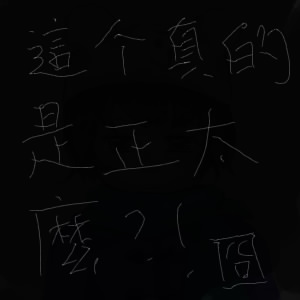 這个真的
是正太
麼?!囧